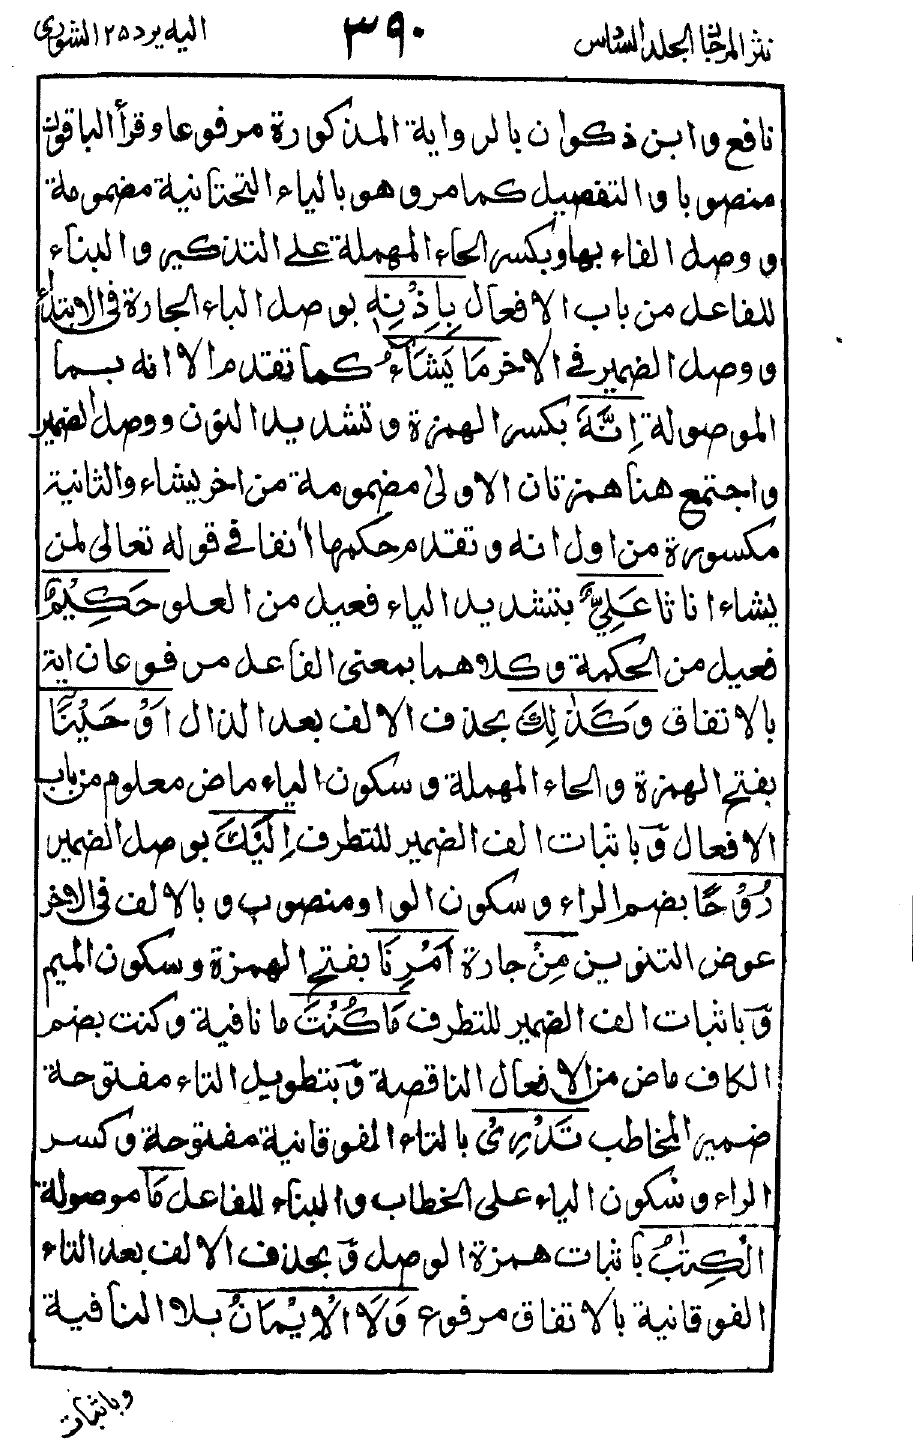 نثر المرجان الجلد السادس ٣٩٠ اليه يرد ٢٥ الشورى
نافع وابن ذكوان بالرواية المذكورة مرفوعا وقرأ الباقون
منصوبا والتفصيل كما مر وهو بالياء التحتانية مضمومة
ووصل الفاء بها وبكسر الحاء المهملة على التذكير والبناء
للفاعل من باب الافعال بِاِذْنِهٖ بوصل الباء الجارة فى الابتداء
ووصل الضمير فى الاخر مَا يَشَآءُ كما تقدم الا انه بـما
الموصولة اِنَّهٗ بكسر الهمزة وتشديد النون ووصل الضمير
واجتمع هنا همزتان الاولى مضمومة من اخر يشاء والثانية
مكسورة من اول انه وتقدم حكمها أنفا فى قوله تعالى لمن
يشاء اناثا عَلِيٌّ بتشديد الياء فعيل من العلو حَكِيْمٌ
فعيل من الحكمة وكلاهما بمعنى الفاعل مرفوعان اية
بالاتفاق وَكَذٰلِكَ بحذف الالف بعد الذال اَوْحَيْنَآ
بفتح الهمزة والحاء المهملة وسكون الياء ماض معلوم من باب
الافعال وبَاثبات الف الضمير للتطرف اِلَيْكَ بوصل الضمير
رُوْحًا بضم الراء وسكون الواو منصوب وبالالف فى الاخر
عوض التنوين مِنْ جارة اَمْرِنَا بفتح الهمزة وسكون الميم
وبَاثبات الف الضمير للتطرف مَا كُنْتَ ما نافية وكنت بضم
الكاف ماض من الافعال الناقصة وبَتطويل التاء مفتوحة
ضمير المخاطب تَدْرِىْ بالتاء الفوقانية مفتوحة وكسر
الراء وسكون الياء على الخطاب والبناء للفاعل مَا موصولة
الْكِتٰبُ باثبات همزة الوصل وبَحذف الالف بعد التاء
الفوقانية بالاتفاق مرفوع وَلَا الْاِيْمَانُ بلا النافية
وباثبات